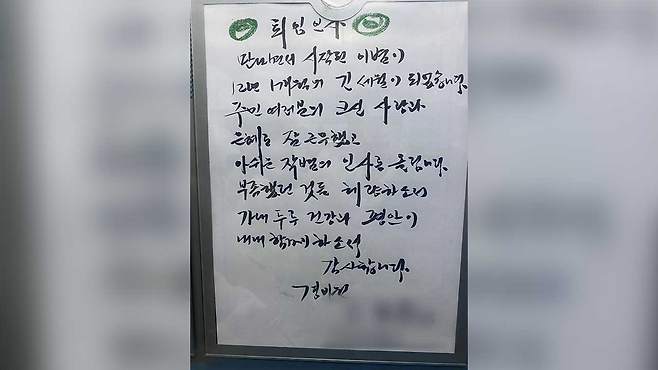 퇴임 인사
만남이란 시작된 이별이
12년 1개월의 긴 세월이 되었습니다.
주민 여러분의 크신 사랑과
은혜로 잘 근무했고
아쉬운 작별의 인사를 올립니다.
부족했던 것들 해량하소서
가내 두루 건강과 평안이
내내 함께 하소서
감사합니다.
경비원